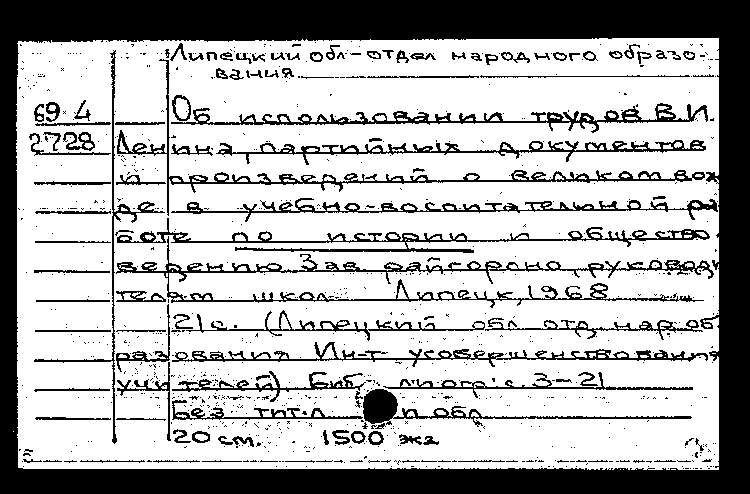 Липецкий обл-отдел народного образо-
вания
69-4 Об использовании трудов В.И.
2728 Ленина, партийных документов
и произведений о великом вож
де в учебно-воспитательной ра
боте по истории и общество-
ведению Зав. райгороно, руководи
телям школ. Липецк, 1968
21с. (Липецкий обл отд нар об
разования Ин-т усовершенствования
учителей). Библиогр: с. 3-21
Без тит. л. и обл
20 см. 1500 экз